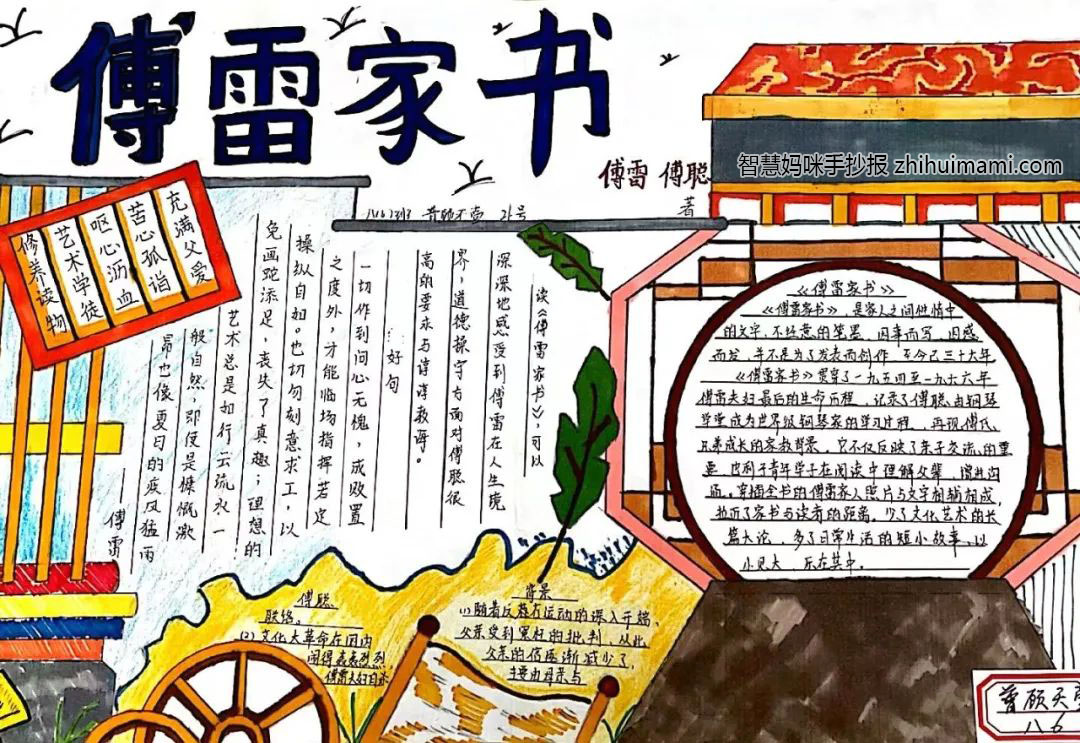 傅雷家书
傅雷 傅聪
著
智慧妈咪手抄报 zhihuimami.com
充满父爱
苦心孤诣
呕心沥血
艺术学徒
修养读物
读《傅雷家书》,可以
深深地感受到傅雷在人生境
界,道德操守方面对傅聪很
高的要求与谆谆教诲。
好句
一切作到问心无愧,成败置
之度外,才能临场指挥若定
操纵自如。也切勿刻意求工,以
免画蛇添足,丧失了真趣;理想的
艺术总是如行云流水一
般自然,即使是慷慨激
昂也像夏日的疾风猛雨
傅雷
《傅雷家书》
《傅雷家书》是家人之间
的文字,不经意的笔墨,因事而写,因感
而发,并不是为了发表而创作,至今已三十大年
《傅雷家书》贯穿了一九五四至一九六六年
傅雷夫妇最后的生命历程,记录了傅聪由钢琴
学童成为世界级钢琴家的学习片程,再现傅氏
兄弟成长的家教背景,它不仅反映了亲子交流的重
要,也利于青年学子在阅读中理解父辈,增进沟
通。穿插全书的傅雷家人照片与文字相辅相成
拉近了家书与读者的距离,少了文化艺术的长
篇大论,多了日常生活的短小故事,以
小见大,乐在其中。
背景
(1)随着反右运动的深入开端,
父亲受到 的批判,从此
父亲的信逐渐减少了,
主要由母亲与
傅聪
联络。
(2)文化大革命在国内
闹得轰轰烈烈,
傅雷夫妇
曾颀天
八6